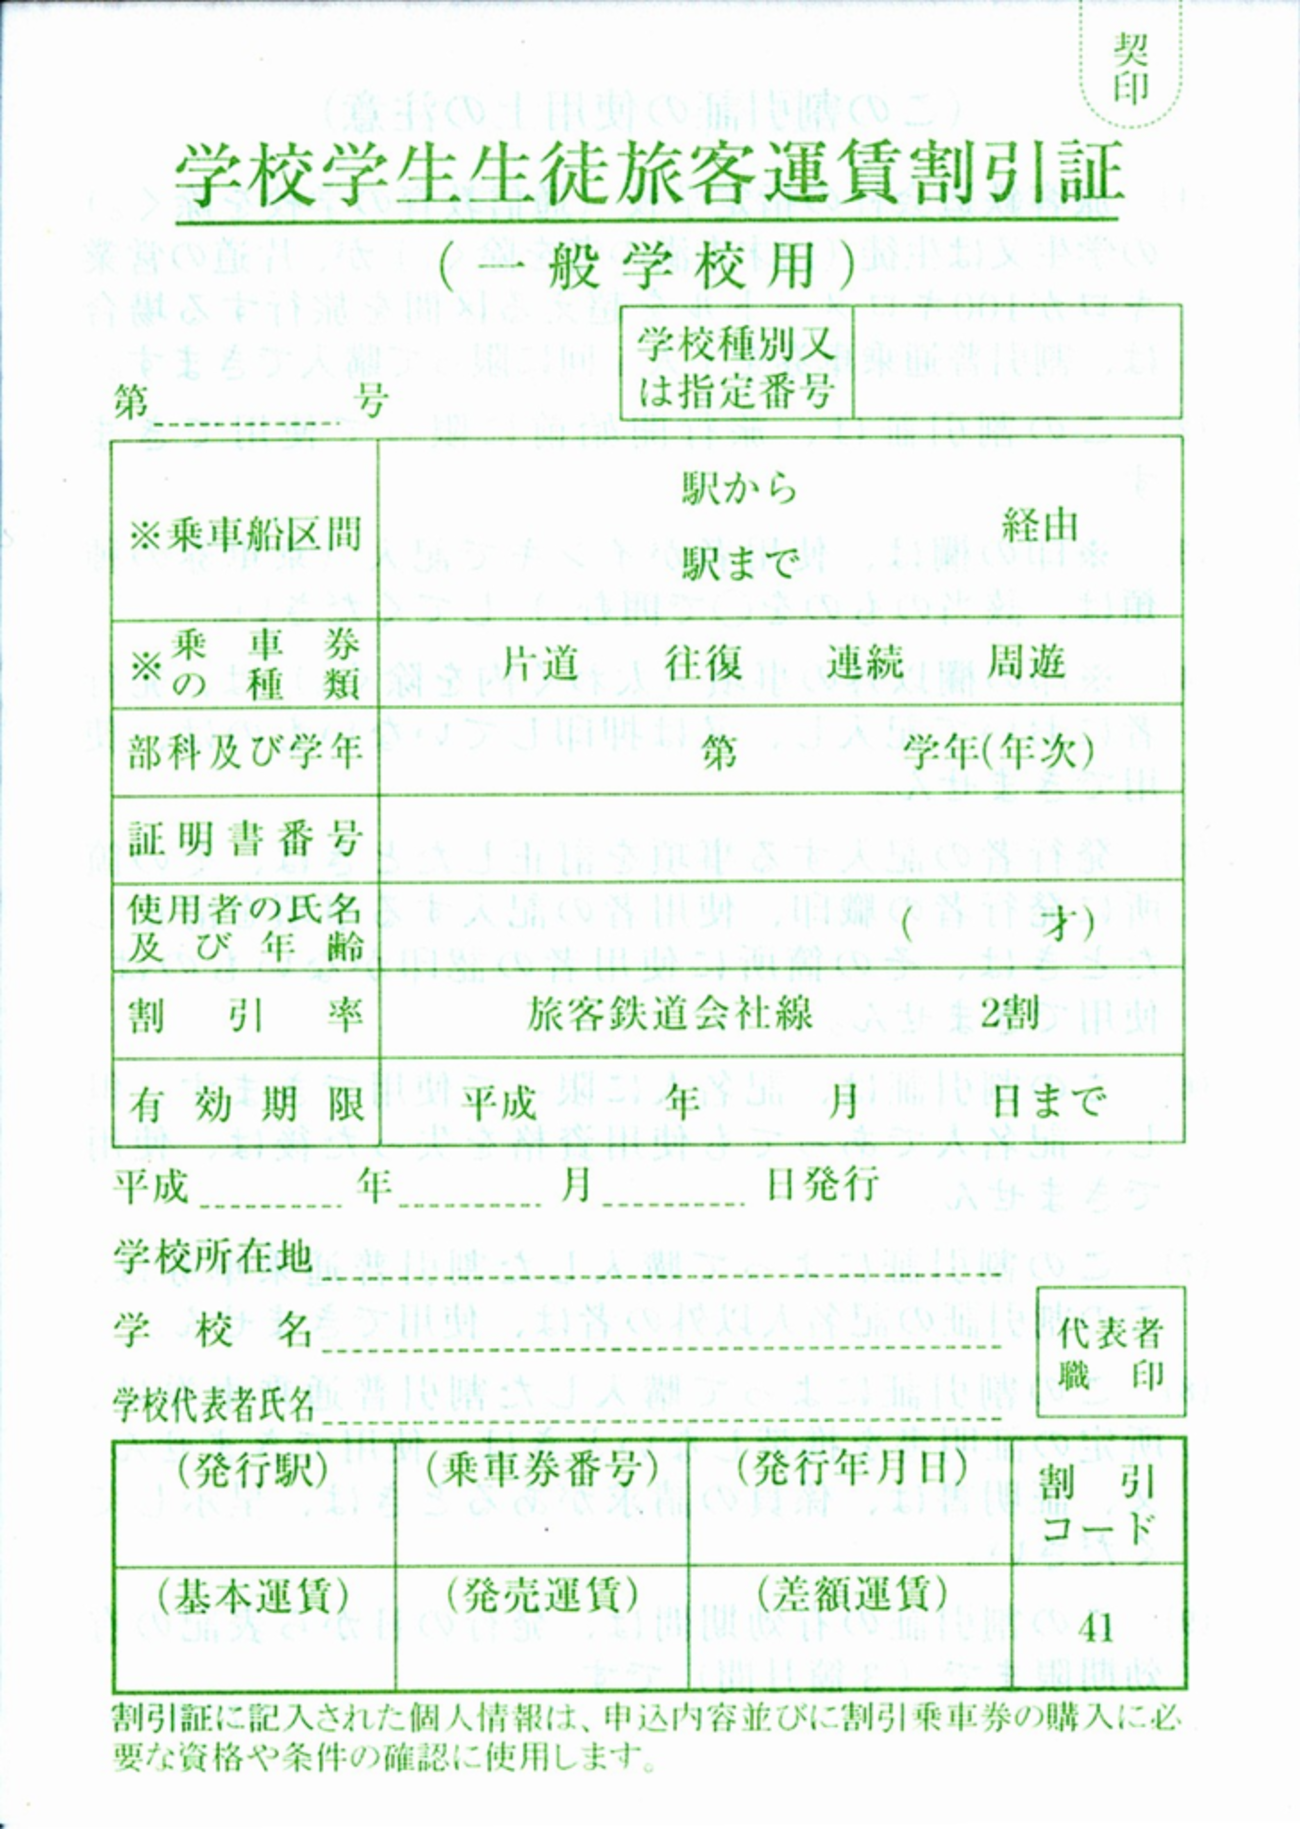 契印
学校学生生徒旅客運賃割引証
(一般学校用)
学校種別又
は指定番号
第 号
※乗車船区間
駅から
経由
駅まで
※乗車券
の種類
片道 往復 連続 周遊
部科及び学年 第 学年(年次)
証明書番号
使用者の氏名
及び年齢
( 才)
割引率 旅客鉄道会社線 2割
有効期限 平成 年 月 日まで
平成 年 月 日発行
学校所在地
学校名
学校代表者氏名
代表者
職印
(発行駅) (乗車券番号) (発行年月日) 割引
コード
(基本運賃) (発売運賃) (差額運賃)
41
割引証に記入された個人情報は、申込内容並びに割引乗車券の購入に必
要な資格や条件の確認に使用します。